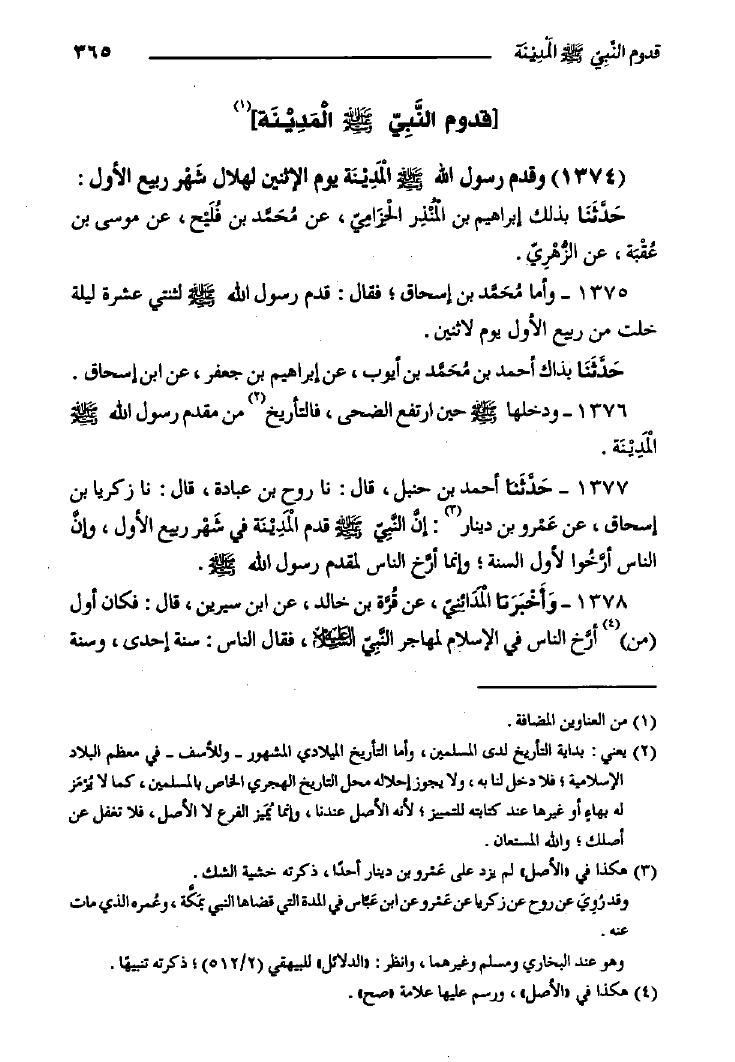 قدوم النَّبِيّ ﷺ الْمَدِيْنَة ٣٦٥
[قدوم النَّبِيّ ﷺ الْمَدِيْنَة](١)
(١٣٧٤) وقدم رسول الله ﷺ الْمَدِيْنَة يوم الإثنين لهلال شَهْر ربيع الأول :
حَدَّثَنَا بذلك إبراهيم بن الْمُنْذِر الحِزَامِيّ ، عن مُحَمَّد بن فُلَيْح ، عن موسى بن
عُقْبَة ، عن الزُّهْرِيّ .
١٣٧٥ ـ وأما مُحَمَّد بن إسحاق ؛ فقال : قدم رسول الله ﷺ لثنتي عشرة ليلة
خلت من ربيع الأول يوم لاثنين .
حَدَّثَنَا بذاك أحمد بن مُحَمَّد بن أيوب ، عن إبراهيم بن جعفر ، عن ابن إسحاق .
١٣٧٦ ـ ودخلها ﷺ حين ارتفع الضحى ، فالتأريخ(٢) من مقدم رسول الله ﷺ
الْمَدِيْنَة .
١٣٧٧ ـ حَدَّثَنَا أحمد بن حنبل ، قال : نا روح بن عبادة ، قال : نا زكريا بن
إسحاق ، عن عَمْرو بن دينار(٣) : إنَّ النَّبِيّ ﷺ قدم الْمَدِيْنَة في شَهْر ربيع الأول ، وإنَّ
الناس أرَّخُوا لأول السنة ؛ وإنما أرَّخ الناس لمقدم رسول الله ﷺ .
١٣٧٨ ـ وَأَخْبَرَنَا الْمَدَائِنِيّ ، عن قُرَّة بن خالد ، عن ابن سيرين ، قال : فكان أول
(من)(٤) أرَّخ الناس في الإسلام لمهاجر النَّبِيّ عليه السلام ، فقال الناس : سنة إحدى ، وسنة
(١) من العناوين المضافة .
(٢) يعني : بداية التأريخ لدى المسلمين ، وأما التأريخ الميلادي المشهور ـ وللأسف ـ في معظم البلاد
الإسلامية ؛ فلا دخل لنا به ، ولا يجوز إحلاله محل التاريخ الهجري الخاص بالمسلمين ، كما لا يُرْمَز
له بهاءٍ أو غيرها عند كتابته للتمييز ؛ لأنه الأصل عندنا ، وإنما يُمَيز الفرع لا الأصل ، فلا تغفل عن
أصلك ؛ والله المستعان .
(٣) هكذا في «الأصل» لم يزد على عَمْرو بن دينار أحدًا ، ذكرته خشية الشك .
وقد رُوِيَ عن روح عن زكريا عن عَمْرو عن ابن عَبَّاس في المدة التي قضاها النبي بمَكَّة ، وعُمره الذي مات
عنه .
وهو عند البخاري ومسلم وغيرهما ، وانظر : «الدلائل» للبيهقي (٥١٢/٢) ؛ ذكرته تنبيهًا .
(٤) هكذا في «الأصل» ، ورسم عليها علامة «صح» .